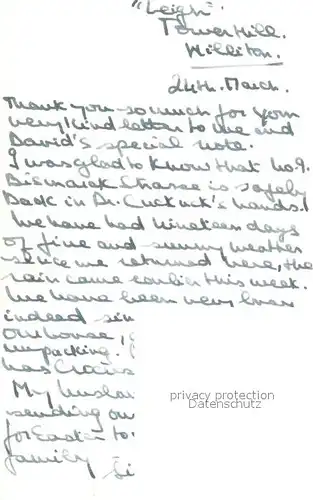 "Leigh".
Tower Hill.
Williton.
24th. March.
Thank you so much for your
very kind letter to me and
David's special note.
I was glad to know that no. 9.
Bismarck Strasse is safely
back in Dr. Cuckuck's hands.!
We have had nineteen days
of fine and sunny weather
since we returned here, the
rain came earlier this week.
We have been very busy
indeed sin
our house, (
unpacking. (
has
My husban
sending ou
for Easter to
family
privacy protection
Datenschutz